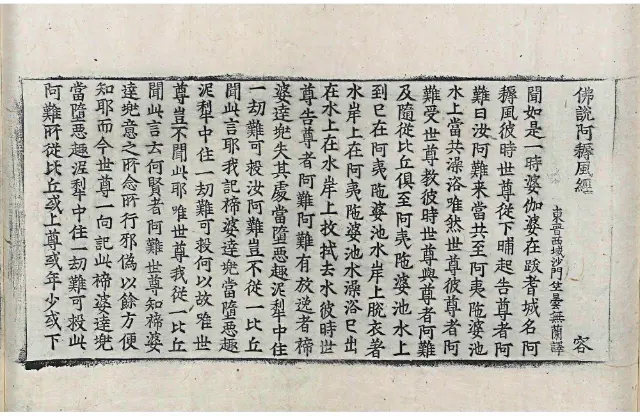 佛說阿耨風經 容
東晉西域沙門竺曇無蘭譯
聞如是一時婆伽婆在跋耆城名阿
耨風彼時世尊從下晡起告尊者阿
難曰汝阿難來當共至阿夷陁婆池
水上當共澡浴唯然世尊彼尊者阿
難受世尊教彼時世尊與尊者阿難
及隨從比丘俱至阿夷陁婆池水上
到已在阿夷陁婆池水岸上脫衣著
水岸上在阿夷陁婆池水澡浴已出
在水上在水岸上抆拭去水彼時世
尊告尊者阿難阿難有放逸者㮛
婆達兜失其處當墮惡趣泥犁中住
一劫難可投汝阿難豈不從一比丘
聞此言耶我記㮛婆達兜當墮惡趣
泥犁中住一劫難可投何以故唯世
尊豈不聞此耶唯世尊我從一比丘
聞此言云何賢者阿難世尊知㮛婆
達兜意之所念所行邪偽以餘方便
知耶而今世尊一向記此㮛婆達兜
當墮惡趣泥犁中住一劫難可投此
阿難所從比丘或上尊或年少或下